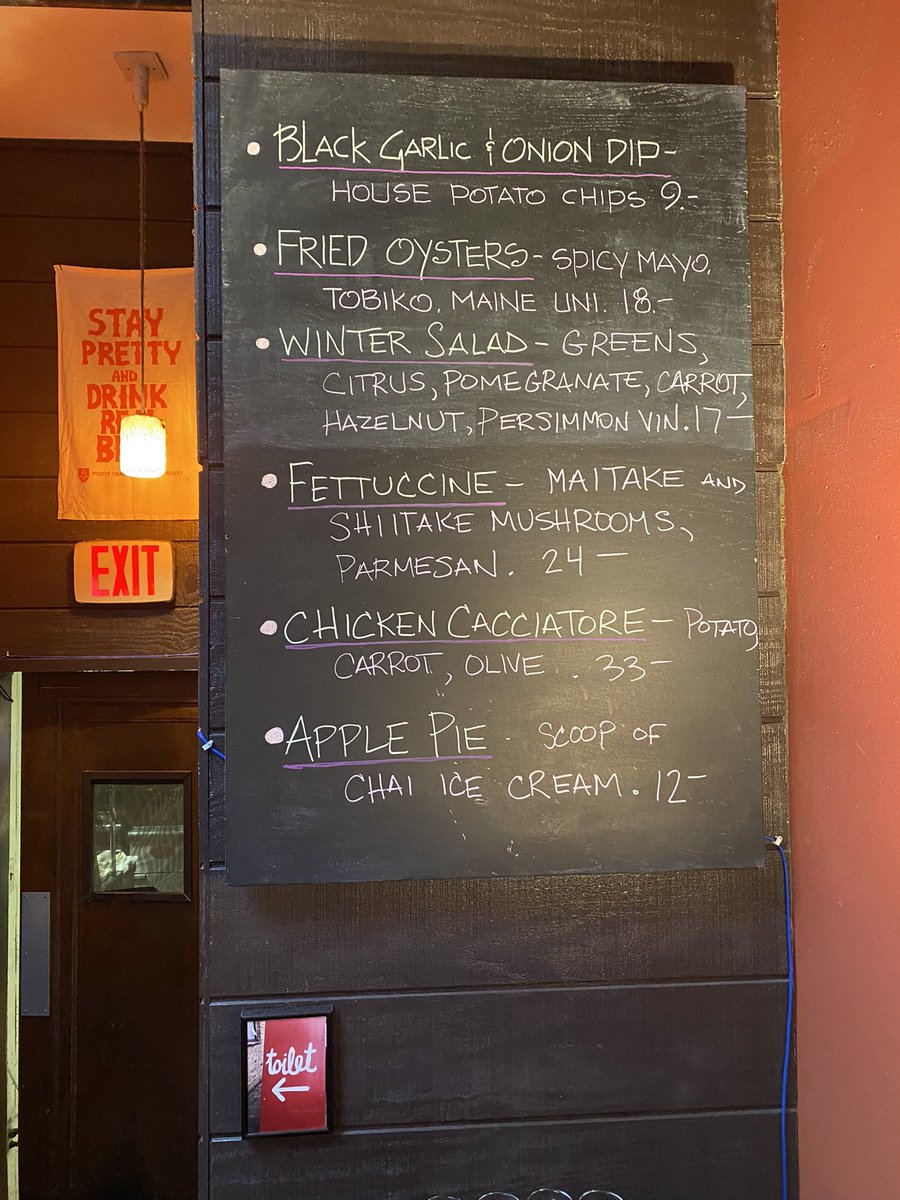 • BLACK GARLIC & ONION DIP-
HOUSE POTATO CHIPS 9.-
• FRIED OYSTERS - SPICY MAYO.
TOBIKO. MAINE UNI. 18.-
• WINTER SALAD - GREENS,
CITRUS, POMEGRANATE, CARROT,
HAZELNUT, PERSIMMON VIN. 17-
• FETTUCCINE - MAITAKE AND
SHIITAKE MUSHROOMS,
PARMESAN. 24-
• CHICKEN CACCIATORE - POTATO,
CARROT, OLIVE. 33-
• APPLE PIE - SCOOP OF
CHAI ICE CREAM. 12-
STAY
PRETTY
AND
DRINK
EXIT
toilet
←